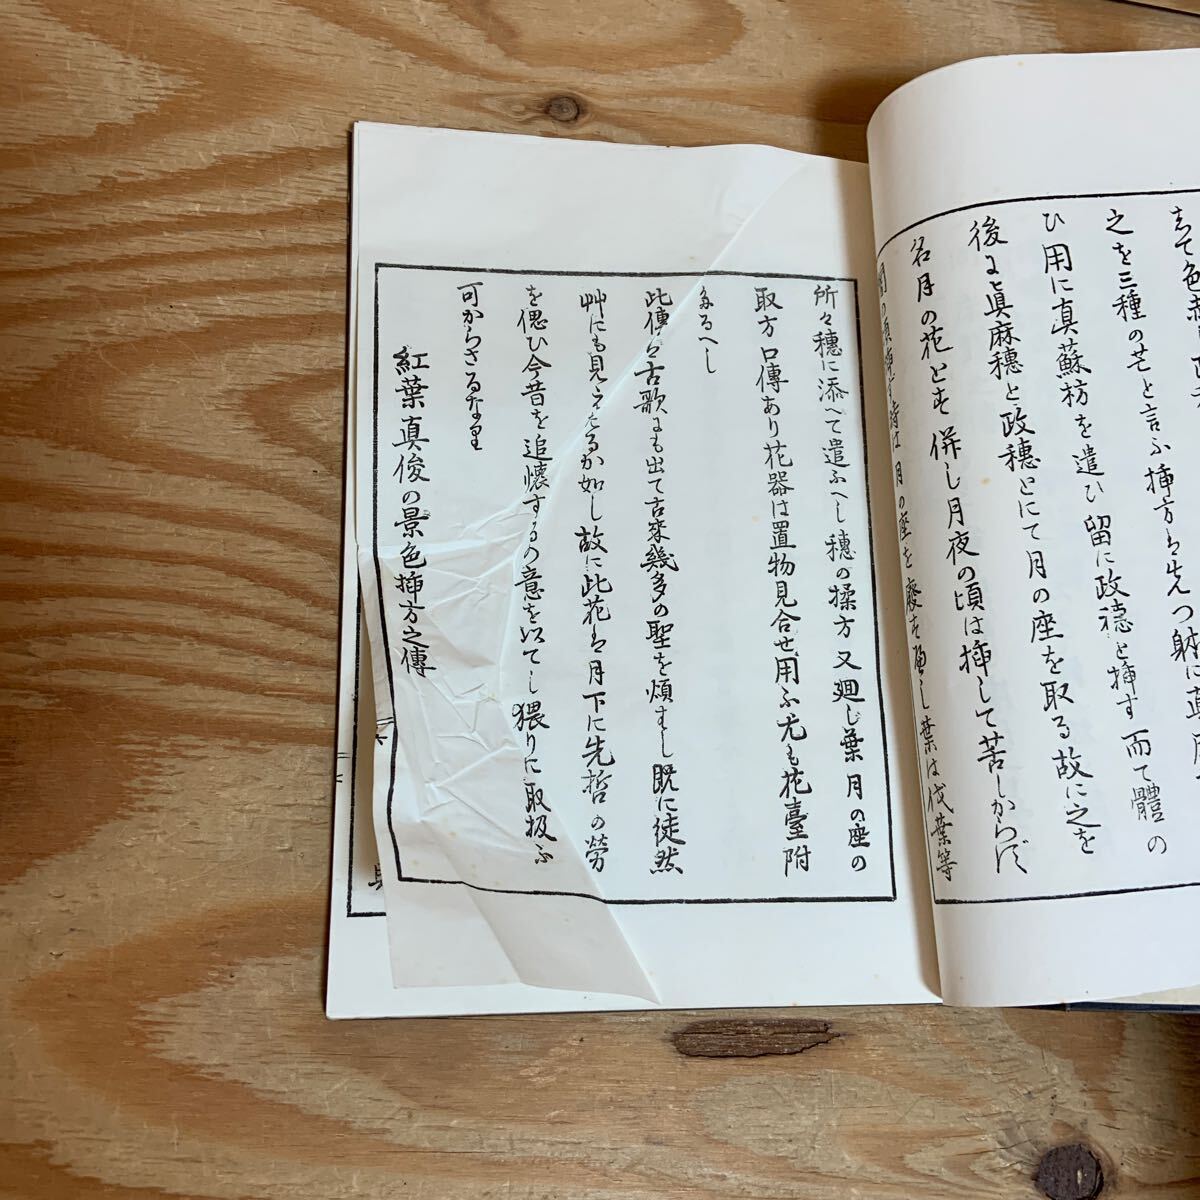 之を三種の芒と言ふ挿方は先つ躰に真
ひ用に真蘇枋を遣ひ留に政穂と挿す而て體の
後に真麻穂と政穂とにて月の座を取る故に之を
名月の花とす併し月夜の頃は挿して苦しからず
月の座を廃す 葉は伐葉等
所々穂に添へて遣ふへし穂の揉方又廻し葉月の座の
取方口傳あり花器は置物見合せ用ふ尤も花臺附
たるへし
此傳は古歌にも出て古来幾多の聖を煩すし既に徒然
艸にも見えたるか如し故に此花は月下に先哲の勞
を偲ひ今昔を追懐するの意を以てし猥りに取扱ふ
可からさるなり
紅葉真俊の景色挿方之傳